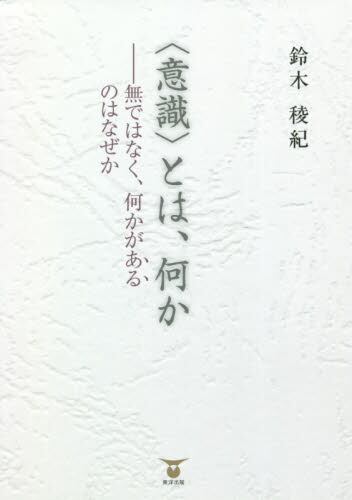 鈴木 稜紀
〈意識〉とは、何か
――無ではなく、何かがある
のはなぜか
東洋出版